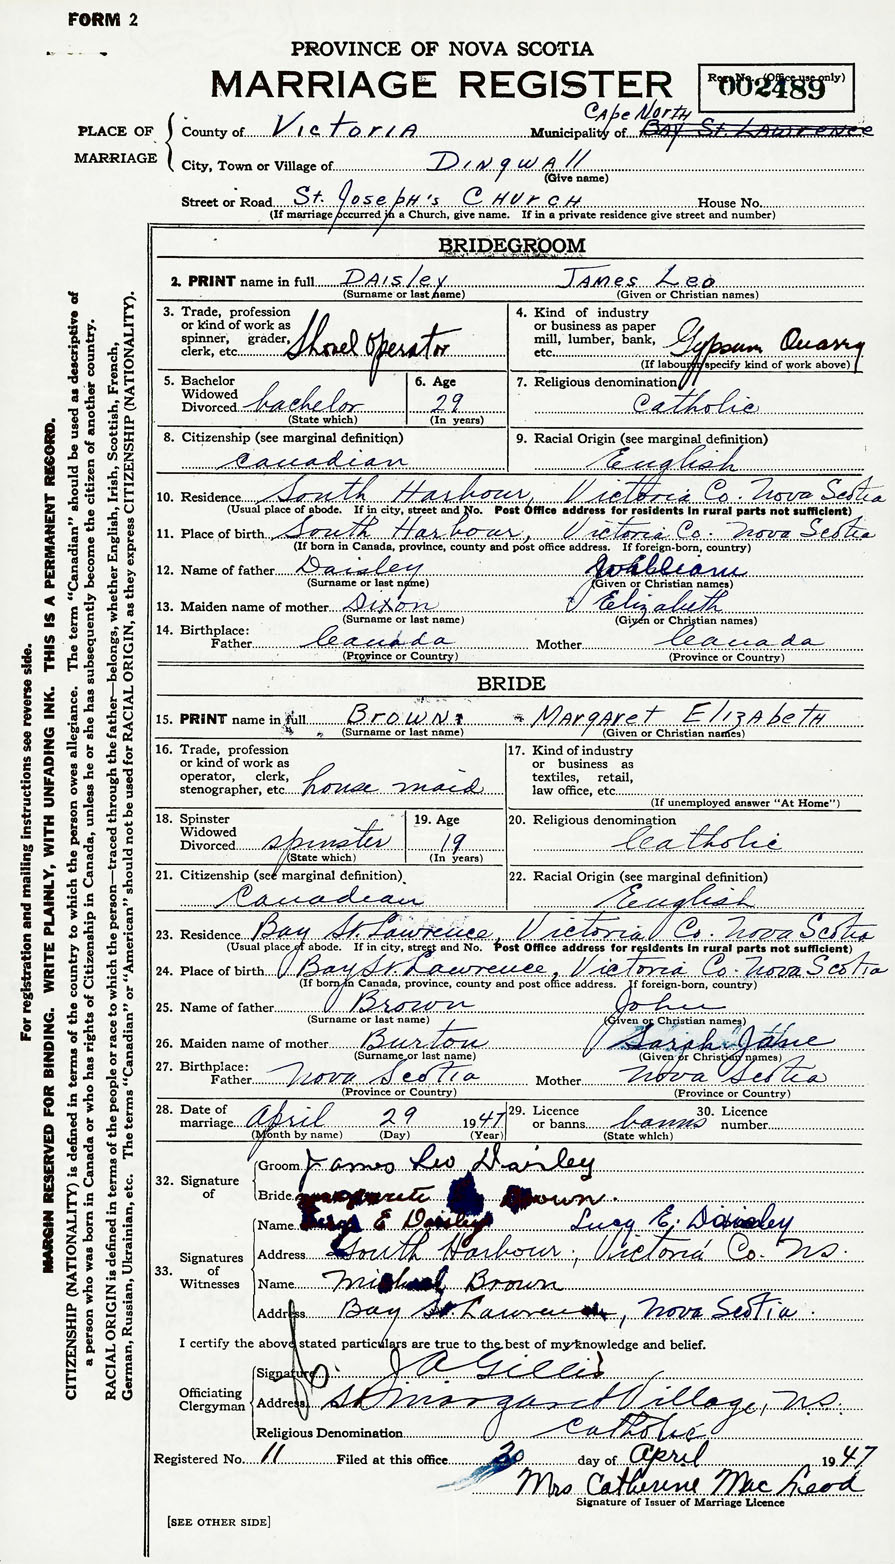 FORM 2
PROVINCE OF NOVA SCOTIA
MARRIAGE REGISTER
Regn. No. (Office use only)
002489
PLACE OF MARRIAGE
County of Victoria Municipality of Cape North Bay St. Lawrence
City, Town or Village of Dingwall
(Give name)
Street or Road St. Joseph's Church House No.
(If marriage occurred in a Church, give name. If in a private residence give street and number)
BRIDEGROOM
2. PRINT name in full Daisley James Leo
(Surname or last name) (Given or Christian names)
3. Trade, profession or kind of work as spinner, grader, clerk, etc. Shovel operator
4. Kind of industry or business as paper mill, lumber, bank, etc. Gypsum Quarry
(If labourer, specify kind of work above)
5. Bachelor Widowed Divorced bachelor
(State which)
6. Age 29
(In years)
7. Religious denomination Catholic
8. Citizenship (see marginal definition) Canadian
9. Racial Origin (see marginal definition) English
10. Residence South Harbour, Victoria Co. Nova Scotia
(Usual place of abode. If in city, street and No. Post Office address for residents in rural parts not sufficient)
11. Place of birth South Harbour, Victoria Co. Nova Scotia
(If born in Canada, province, county and post office address. If foreign-born, country)
12. Name of father Daisley William
(Surname or last name) (Given or Christian names)
13. Maiden name of mother Dixon Elizabeth
(Surname or last name) (Given or Christian names)
14. Birthplace: Father Canada Mother Canada
(Province or Country) (Province or Country)
BRIDE
15. PRINT name in full Brown Margaret Elizabeth
(Surname or last name) (Given or Christian names)
16. Trade, profession or kind of work as operator, clerk, stenographer, etc. house maid
17. Kind of industry or business as textiles, retail, law office, etc.
(If unemployed answer "At Home")
18. Spinster Widowed Divorced spinster
(State which)
19. Age 19
(In years)
20. Religious denomination Catholic
21. Citizenship (see marginal definition) Canadian
22. Racial Origin (see marginal definition) English
23. Residence Bay St. Lawrence, Victoria Co. Nova Scotia
(Usual place of abode. If in city, street and No. Post Office address for residents in rural parts not sufficient)
24. Place of birth Bay St. Lawrence, Victoria Co. Nova Scotia
(If born in Canada, province, county and post office address. If foreign-born, country)
25. Name of father Brown John
(Surname or last name) (Given or Christian names)
26. Maiden name of mother Burton Sarah Jane
(Surname or last name) (Given or Christian names)
27. Birthplace: Father Nova Scotia Mother Nova Scotia
(Province or Country) (Province or Country)
28. Date of marriage April 29 1947
(Month by name) (Day) (Year)
29. Licence or banns banns
(State which)
30. Licence number
32. Signature of
Groom James Leo Daisley
Bride Brown.
33. Signatures of Witnesses
Name E Daisley Lucy E. Daisley
Address South Harbour, Victoria Co. N.S.
Name Michael Brown
Address Bay St. Lawrence, Nova Scotia.
I certify the above stated particulars are true to the best of my knowledge and belief.
Officiating Clergyman
Signature J A Gillis
Address St. Margaret Village, N.S.
Religious Denomination Catholic
Registered No. 11 Filed at this office 30 day of April 1947
Mrs Catherine MacLeod
Signature of Issuer of Marriage Licence
[SEE OTHER SIDE]
For registration and mailing instructions see reverse side.
MARGIN RESERVED FOR BINDING. WRITE PLAINLY, WITH UNFADING INK. THIS IS A PERMANENT RECORD.
CITIZENSHIP (NATIONALITY) is defined in terms of the country to which the person owes allegiance. The term "Canadian" should be used as descriptive of
a person who was born in Canada or who has rights of Citizenship in Canada, unless he or she has subsequently become the citizen of another country.
RACIAL ORIGIN is defined in terms of the people or race to which the person—traced through the father—belongs, whether English, Irish, Scottish, French,
German, Russian, Ukrainian, etc. The terms "Canadian" or "American" should not be used for RACIAL ORIGIN, as they express CITIZENSHIP (NATIONALITY).